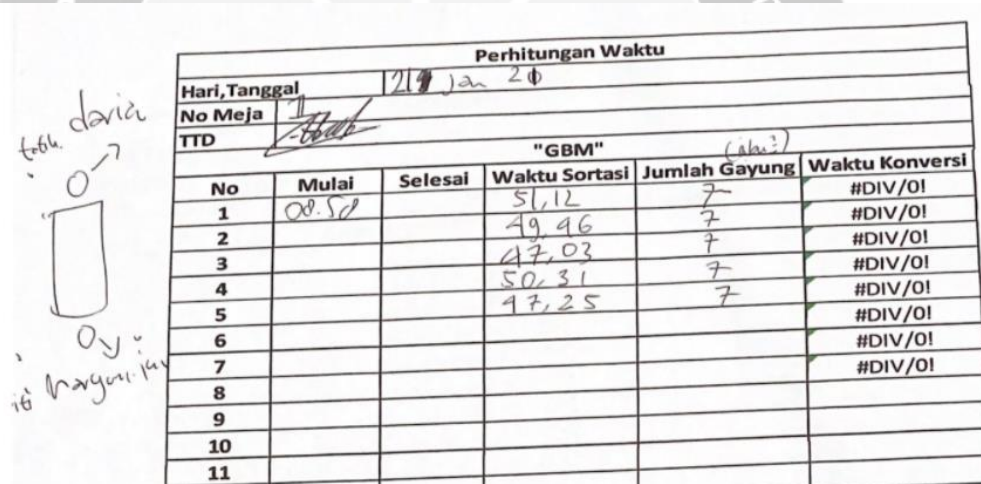 Perhitungan Waktu
Hari,Tanggal Jan 20
No Meja 1
TTD
"GBM"
No Mulai Selesai Waktu Sortasi Jumlah Gayung Waktu Konversi
1 08.58 51,12 7 #DIV/0!
2 49,96 7 #DIV/0!
3 47,03 7 #DIV/0!
4 50,31 7 #DIV/0!
5 47,25 7 #DIV/0!
6 #DIV/0!
7 #DIV/0!
8
9
10
11